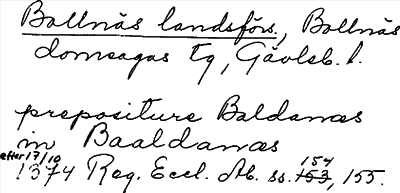 Bollnäs landsförs., Bollnäs
domsagas tg, Gävleb. l.
prepositure Baldanæs
in Baaldanæs
efter 17/10
1374 Reg. Eccl. Ab. ss. 153, 154, 155.